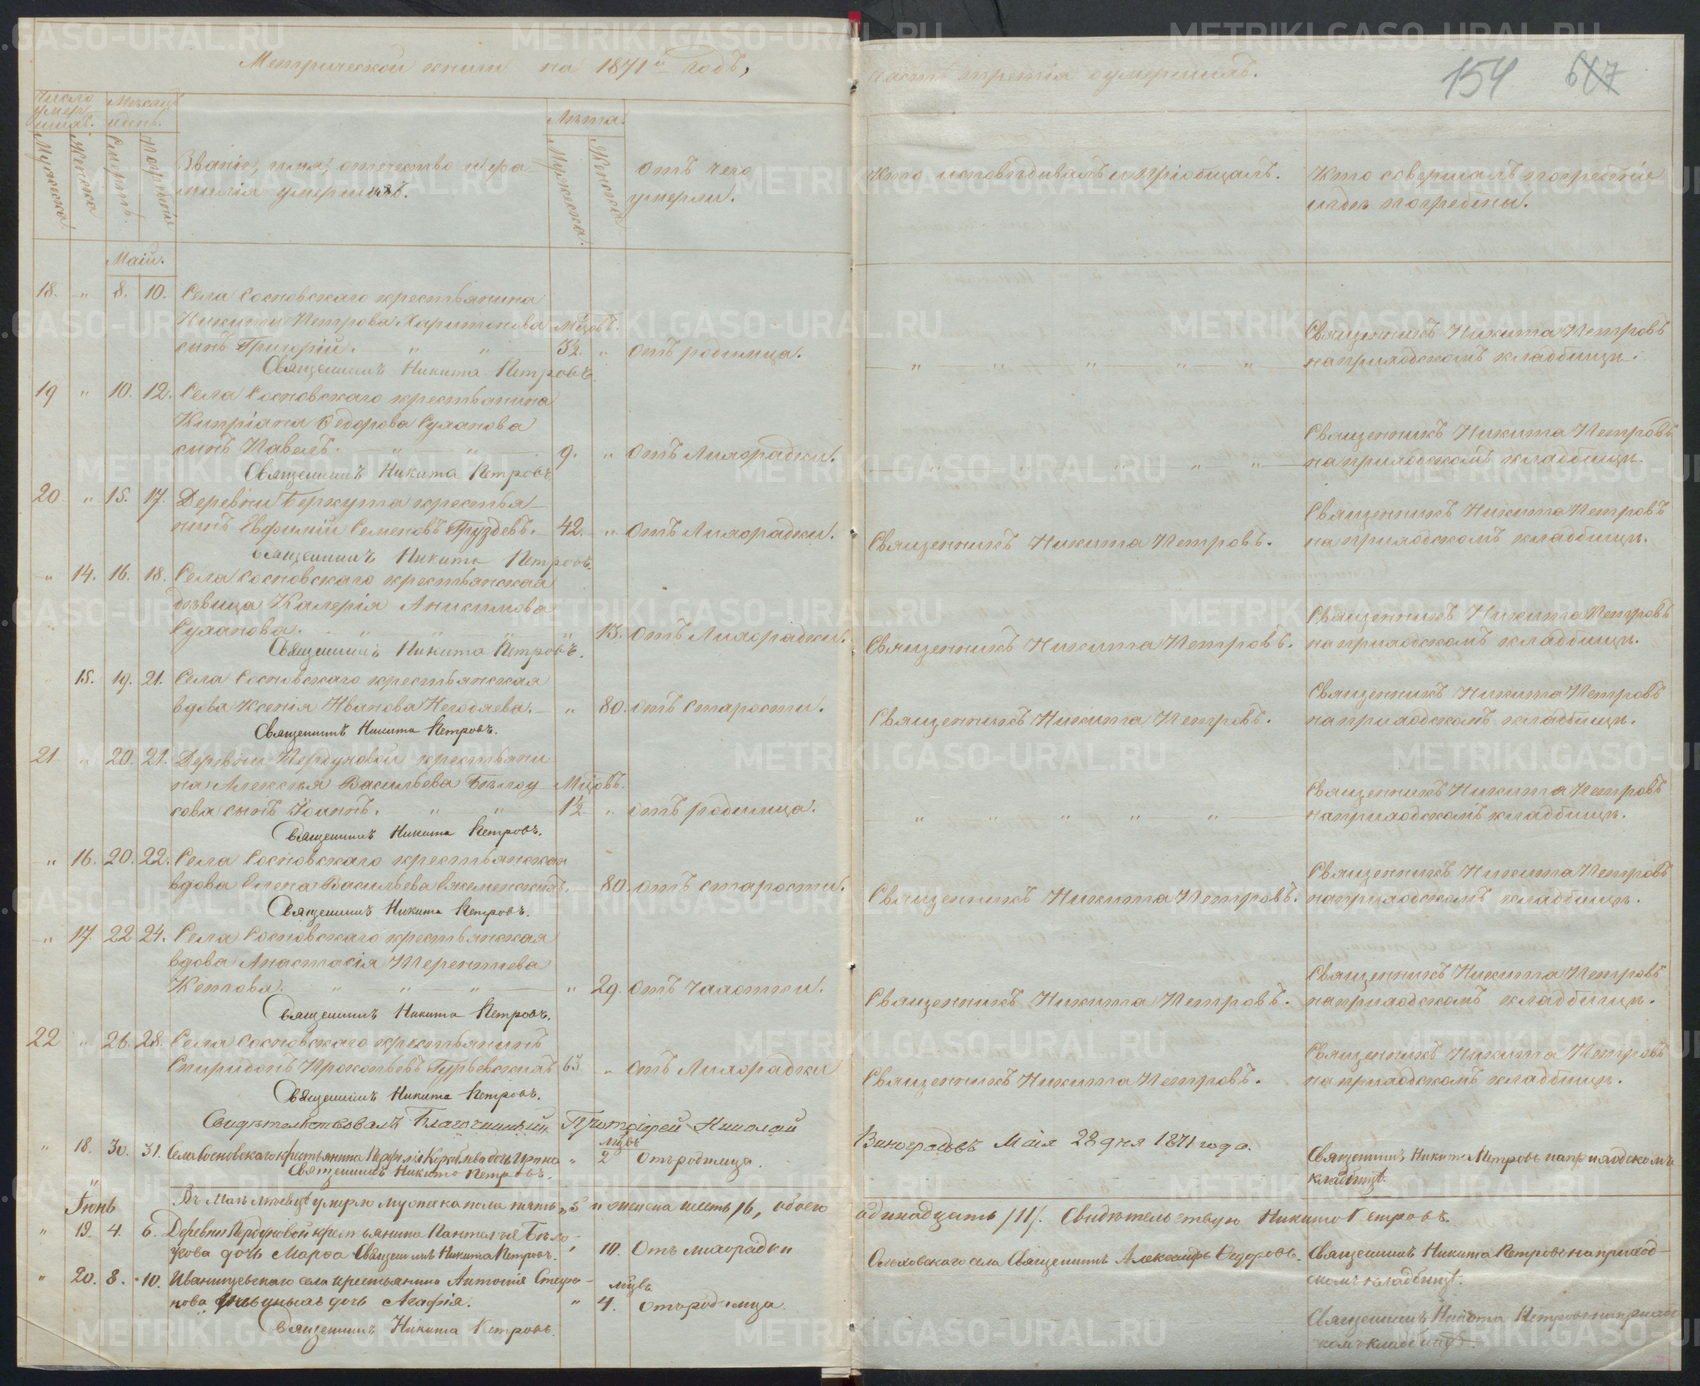 Метрической книги на 1871й годъ,
часть третія о умершихъ.
154
617
Число умершихъ.
Мѣсяцъ и день.
Мужска
Женска
Смерти.
погребенія
Званіе, имя, отчество и фамилія умершихъ.
Лѣта.
Мужска.
Женска
отъ чего умерли.
Кто исповѣдывалъ и пріобщалъ.
Кто совершалъ погребеніе
и гдѣ погребены.
Маій.
18. „ 8. 10. Села Сосновскаго крестьянина
Никиты Петрова Харитонова Мцовъ.
сынъ Григорій. „ „ 3½. „ отъ родимца.
Священникъ Никита Петровъ
на приходскомъ кладбищѣ.
Священникъ Никита Петровъ.
19 „ 10. 12. Села Сосновскаго крестьянина
Кипріана Ѳедорова Суханова
сынъ Павелъ. 9. „ отъ Лихорадки.
Священникъ Никита Петровъ
на приходскомъ кладбищѣ.
Священникъ Никита Петровъ
20 „ 15. 17. Деревни Беркута крестья-
нинъ Евфимій Семеновъ Груздевъ. 42. „ отъ Лихорадки.
Священникъ Никита Петровъ.
Священникъ Никита Петровъ
на приходскомъ кладбищѣ.
Священникъ Никита Петровъ.
„ 14. 16. 18. Села Сосновскаго крестьянская
дѣвица Калерія Анисимова
Суханова. „ „ „ 13. отъ Лихорадки.
Священникъ Никита Петровъ.
Священникъ Никита Петровъ
на приходскомъ кладбищѣ.
Священникъ Никита Петровъ.
15. 19. 21. Села Сосновскаго крестьянская
вдова Ксенія Иванова Негодяева. „ 80. отъ старости.
Священникъ Никита Петровъ.
Священникъ Никита Петровъ
на приходскомъ кладбищѣ.
Священникъ Никита Петровъ.
21. „ 20. 21. Деревни крестьяни
на Алексѣя Васильева Бѣлоу Мцовъ.
сова сынъ Іоаннъ. „ „ 1½ „ отъ родимца.
Священникъ Никита Петровъ
на приходскомъ кладбищѣ.
Священникъ Никита Петровъ.
„ 16. 20. 22. Села Сосновскаго крестьянская
вдова Елена Васильева 80. отъ старости.
Священникъ Никита Петровъ.
Священникъ Никита Петровъ
на приходскомъ кладбищѣ.
Священникъ Никита Петровъ.
„ 17. 22 24. Села Сосновскаго крестьянская
вдова Анастасія Терентіева
„ „ „ „ 29. отъ чахотки.
Священникъ Никита Петровъ.
Священникъ Никита Петровъ
на приходскомъ кладбищѣ.
Священникъ Никита Петровъ.
22 „ 26. 28. Села Сосновскаго крестьянинъ
Спиридонъ Прокопьевъ Гурьевскихъ 63 „ отъ Лихорадки
Священникъ Никита Петровъ.
Священникъ Никита Петровъ
на приходскомъ кладбищѣ.
Священникъ Никита Петровъ.
Свидѣтельствовалъ Благочинный Протоіерей Николай
Виноградовъ Маія 28 дня 1871 года.
„ 18. 30. 31. Села Сосновскаго крестьянина дочь Ирина „ мцвъ 2 Отъ родимца.
Священникъ Никита Петровъ.
Священникъ Никита Петровъ на приходскомъ
кладбищѣ.
Въ Маѣ мѣсяцѣ умерло мужеска пола пять, 5 и женска шесть, 6, обоего
одинадцать /11/. Свидѣтельствую Никита Петровъ.
Іюнь
„ 19. 4. 6. Деревни крестьянина Пантелея Бѣло-
усова дочь Марѳа Священникъ Никита Петровъ. „ 10. Отъ лихорадки
Ольховскаго села Священникъ Александръ Ѳедоровъ.
Священникъ Никита Петровъ на приход-
скомъ кладбищѣ.
„ 20. 8. 10. Иванищевскаго села крестьянина Антонія Стефа-
нова дочь Агафія. „ мцвъ 4. Отъ родимца.
Священникъ Никита Петровъ.
Священникъ Никита Петровъ на приход
скомъ кладбищѣ.
METRIKI.GASO-URAL.RU